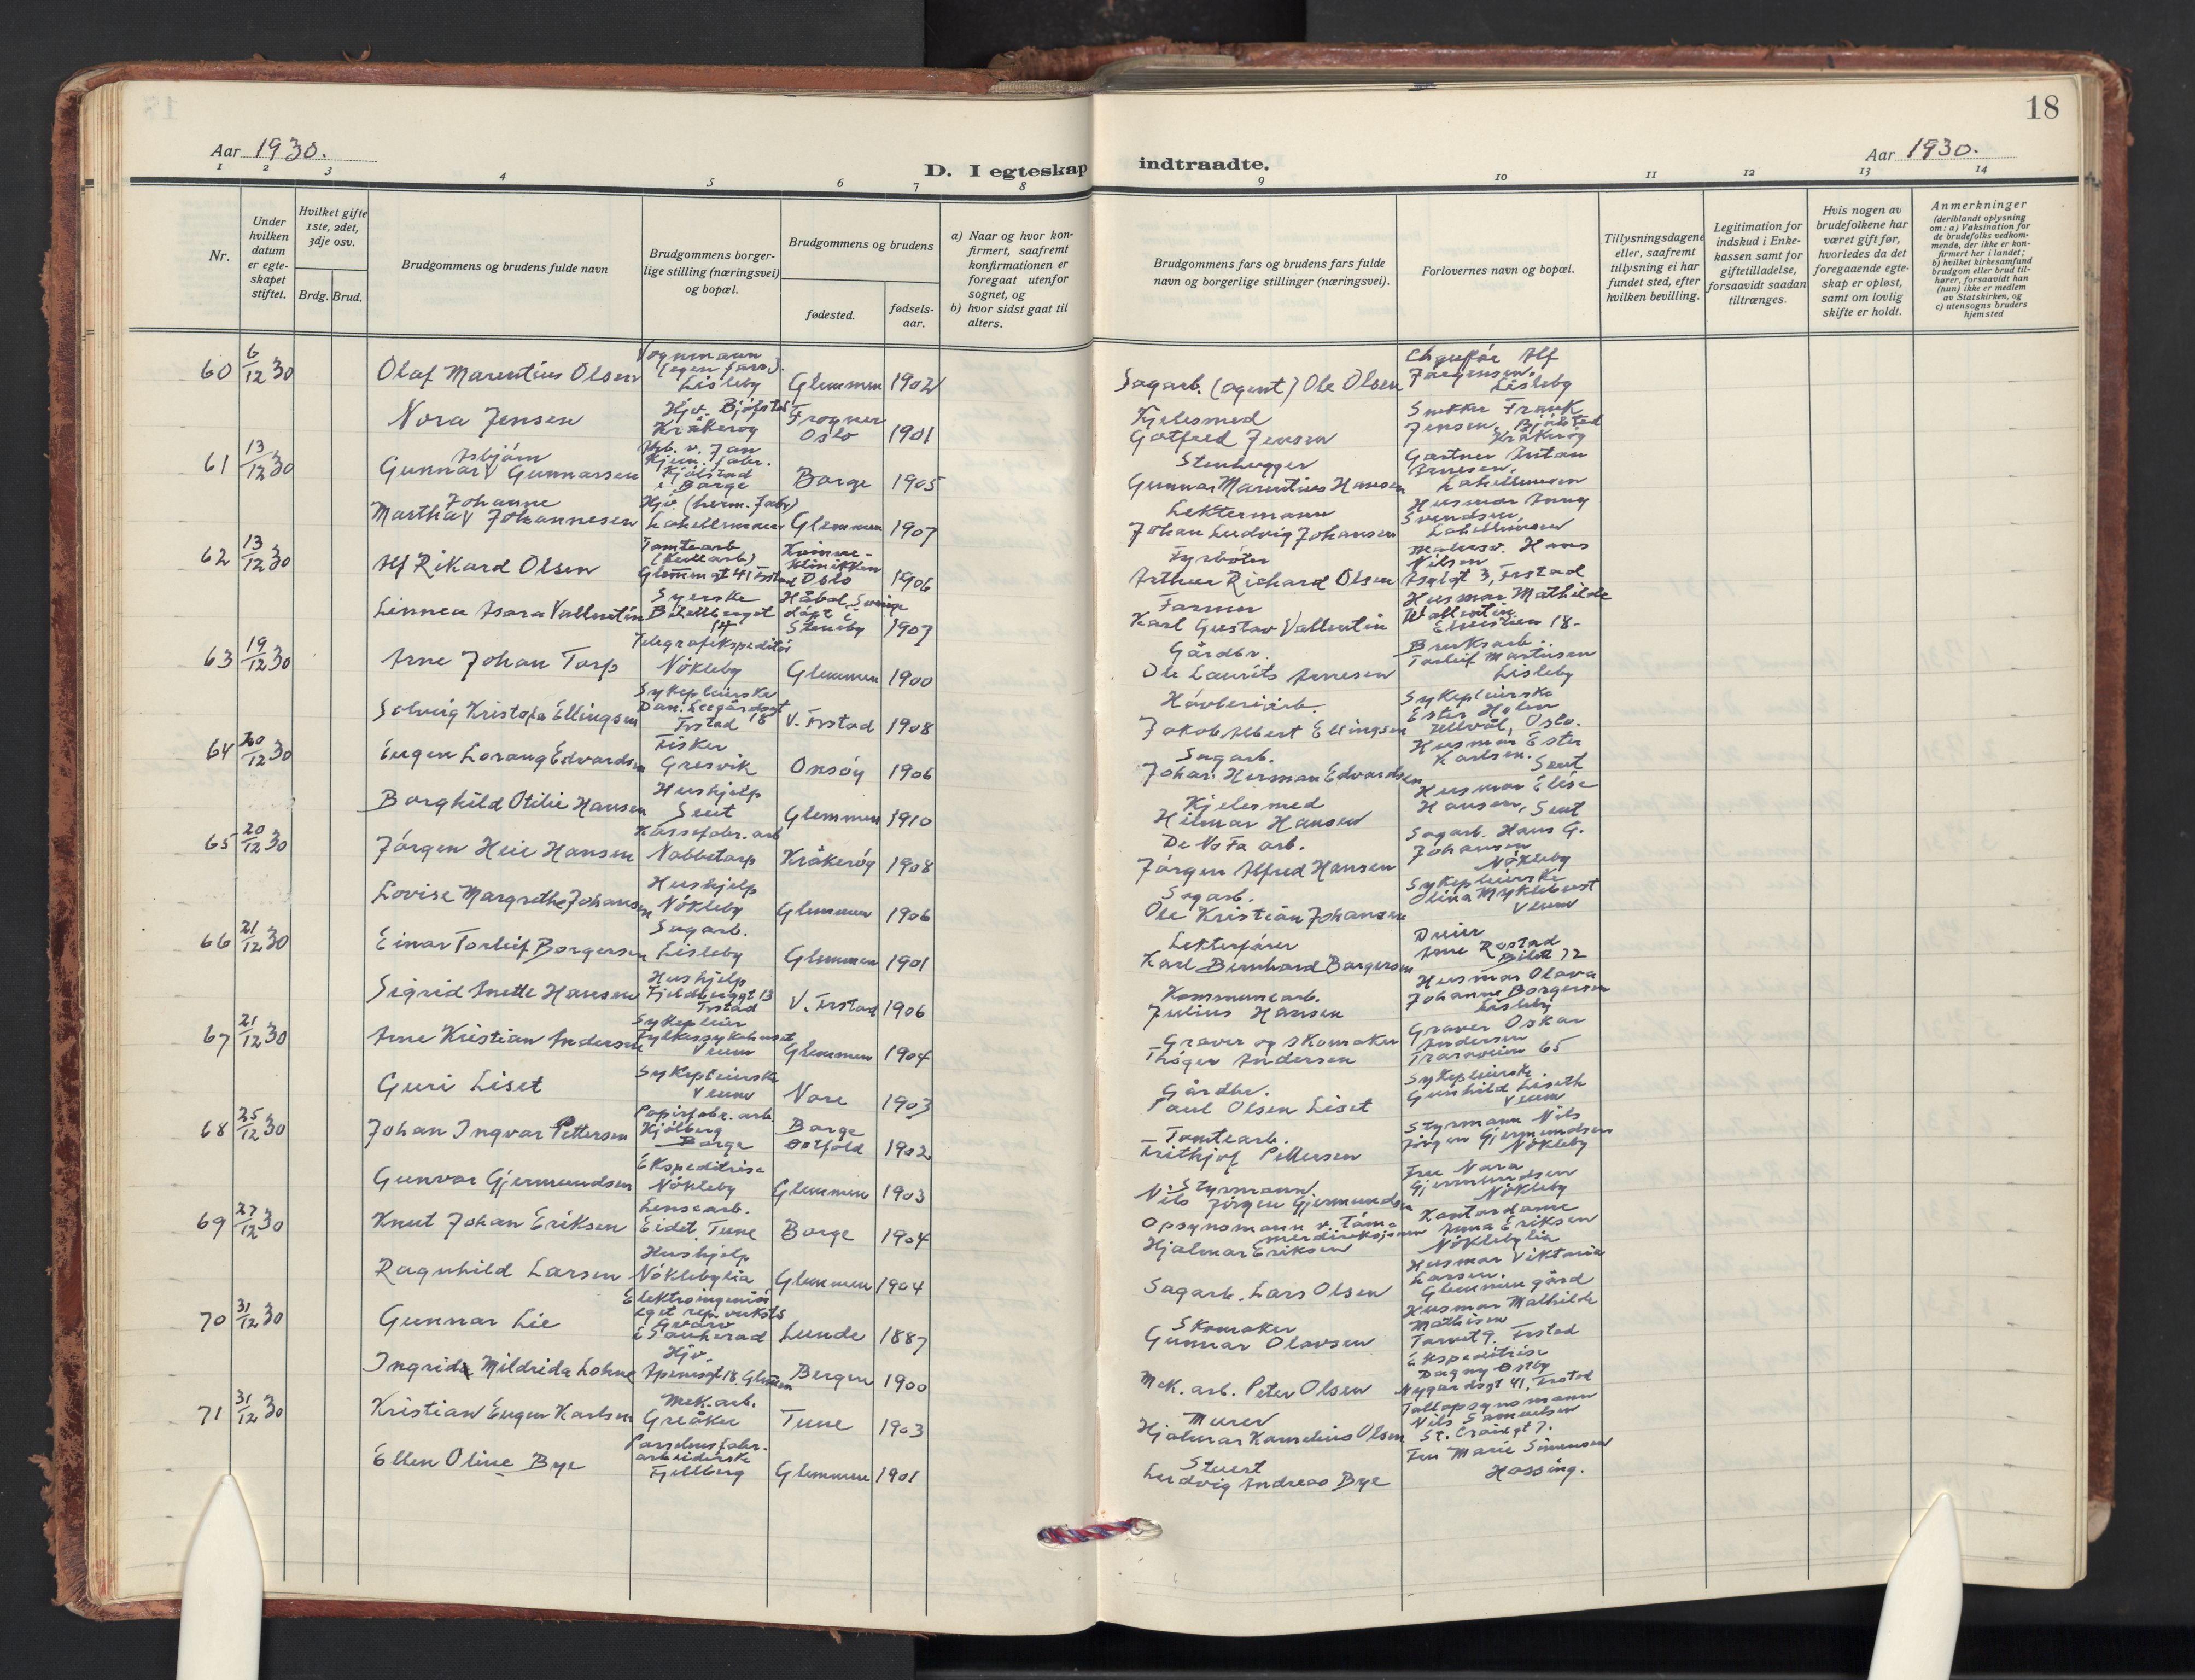 18
Aar 1930.
D. I egteskap indtraadte.
Aar 1930.
1 2 3 4 5 6 7 8 9 10 11 12 13 14
Nr.
Under hvilken datum er egte-skapet stiftet.
Hvilket gifte 1ste, 2det, 3dje osv.
Brdg. Brud.
Brudgommens og brudens fulde navn
Brudgommens borger-
lige stilling (næringsvei)
og bopæl.
Brudgommens og brudens
fødested.
fødsels-
aar.
a) Naar og hvor kon-
firmert, saafremt
konfirmationen er
foregaat utenfor
sognet, og
b) hvor sidst gaat til
alters.
Brudgommens fars og brudens fars fulde
navn og borgerlige stillinger (næringsvei).
Forlovernes navn og bopæl.
Tillysningsdagene
eller, saafremt
tillysning ei har
fundet sted, efter
hvilken bevilling.
Legitimation for
indskud i Enke-
kassen samt for
giftetilladelse,
forsaavidt saadan
tiltrænges.
Hvis nogen av
brudefolkene har
været gift før,
hvorledes da det
foregaaende egte-
skap er opløst,
samt om lovlig
skifte er holdt.
Anmerkninger
(deriblandt oplysning
om: a) Vaksination for
de brudefolks vedkom-
mende, der ikke er kon-
firmert her i landet;
b) hvilket kirkesamfund
brudgom eller brud til-
hører, forsaavidt han
(hun) ikke er medlem
av Statskirken, og
c) utensogns bruders
hjemsted
60 6/12 30 Olaf Marentius Olsen Vognmann Lisleby Glemmen 1902 Sagarb. (agent) Ole Olsen Alf Jørgensen. Lisleby
Nora Jensen Hjv. Kråkerøy Frogner Oslo 1901 Kjelesmed Gotfred Jensen Snekker Frank Jensen, Kråkerøy
61 13/12 30 Gunnar Asbjørn Gunnarsen Kjølstad i Borge Borge 1905 Stenhugger Gunnar Marentius Hansen Gartner Anton Arnesen.
Martha Johanne Johannesen Hjv. (herm. fabr) Glemmen 1907 Lektermann Johan Ludvig Johansen Husmor Svendsen,
62 13/12 30 Alf Rikard Olsen Tomtearb Glemmgt 41 Frstad Kvinne-klinikken Oslo 1906 Fyrbøter Arthur Richard Olsen Hans Nilsen 3, Frstad
Linnea Asora Vallentin Syerske 14 Håbol, Sverige døpt i Steneby 1907 Farmer Karl Gustav Vallentin Husmor Mathilde Wallentin 18.
63 19/12 30 Arne Johan Torp Telegrafekspeditør Nökleby Glemmen 1900 Gårdbr. Ole Laurits Arnesen Bruksarb. Torleif Martinsen Lisleby
Solveig Kristofa Ellingsen Sykepleierske Frstad 18 V. Frstad 1908 Jakob Albert Ellingsen Sykepleierske Ester Holen Ullvål, Oslo.
64 20/12 30 Eugen Lorang Edvardsen Fisker Gresvik Onsøy 1906 Sagarb. Johan Herman Edvardsen Husmor Ester Karlsen. Seut
Borghild Otilie Hansen Hushjelp Seut Glemmen 1910 Kjelesmed Hilmar Hansen Husmor Elise Hansen, Seut
65 20/12 30 Jørgen Heie Hansen Kassefabr. arb Nabbetorp Kråkerøy 1908 De No Fa arb. Jørgen Alfred Hansen Sagarb. Hans G. Johansen Nökleby
Lovise Margrethe Johansen Hushjelp Nökleby Glemmen 1906 Sagarb. Ole Kristian Johansen Sykepleierske Olina Myklebust Veum
66 21/12 30 Einar Torleif Borgersen Sagarb. Lisleby Glemmen 1901 Lekterfører Karl Bernhard Borgersen Dreier Arne Rostad
Sigrid Anette Hansen Hushjelp Fjeldberggt 13 Frstad V. Frstad 1906 Kommunearb. Julius Hansen Husmor Olava Johanne Borgersen Lisleby
67 21/12 30 Arne Kristian Andersen Sykepleier Fylkessykehuset Veum Glemmen 1904 Graver og skomaker Thøger Andersen Graver Oskar Andersen Traraveien 65
Guri Liset Sykepleierske Veum Nore 1903 Gårdbr. Paul Olsen Liset Sykepleierske Gunhild Liseth Veum
68 25/12 30 Johan Ingvar Pettersen Papirfabr. arb. Kjølberg Borge Borge Østfold 1902 Tomtearb. Frithjof Pettersen Styrmann Nils Jørgen Gjermundsen Nökleby
Gunvor Gjermundsen Ekspeditrise Nökleby Glemmen 1903 Styrmann Nils Jørgen Gjermundsen Fru Nora Gjermundsen Nökleby
69 27/12 30 Knut Johan Eriksen Lensearb. Eidet, Tune Borge 1904 Opsynsmann v. tøm-merdireksjonen Hjalmar Eriksen Kontordame Anna Eriksen Nöklebylia
Ragnhild Larsen Hushjelp Nöklebylia Glemmen 1904 Sagarb. Lars Olsen Husmor Viktoria Larsen. Glemmen gård
70 31/12 30 Gunnar Lie Elektroingeniør eget rep. verksted Gvarv i Sauherad Lunde 1887 Skomaker Gunnar Olavsen Husmor Mathilde Mathisen Torvet 9. Frstad
Ingrid Mildrida Lohne Hjv. Bergen 1900 Mek. arb. Peter Olsen Ekspeditrise Dagny Østby Nygårdsgt 41, Frstad
71 31/12 30 Kristian Eugen Karlsen Mek. arb. Greåker Tune 1903 Murer Hjalmar Kornelius Olsen Tollopsynsmann Nils Samuelsen St. Croixgt 7.
Ellen Oline Bye Porselensfabr. arbeiderske Fjellberg Glemmen 1901 Stuert Ludvig Andreas Bye Fru Marie Simensen Hassing.